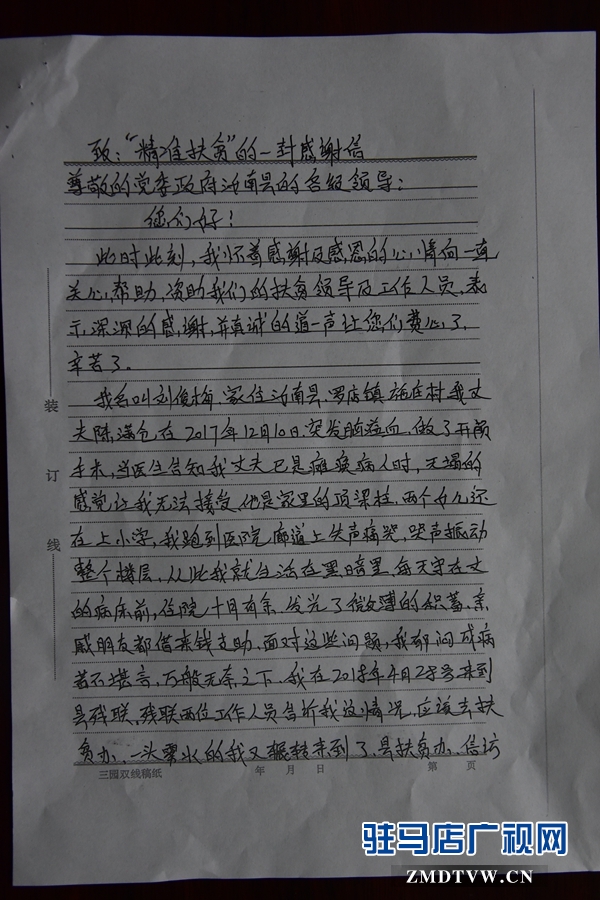 致："精准扶贫"的一封感谢信
尊敬的党委政府汝南县的各级领导：
您们好！
此时此刻，我怀着感谢及感恩的心，情向一直
关心，帮助，资助我们的扶贫领导及工作人员，表
示深深的感谢，并真诚的道一声让您们费心了，
辛苦了。
我名叫刘俊梅，家住汝南县，罗店镇 庄村我丈
夫陈满仓在2017年12月10日，突发脑溢血，做了开颅
手术，当医生告知我丈夫已是瘫痪病人时，天塌的
感觉让我无法接受，他是家里的顶梁柱，两个女儿还
在上小学，我跑到医院廊道上失声痛哭，哭声振动
整个楼层，从此我就生活在黑暗里，每天守在丈
的病床前，住院十月有余，发光了微薄的积蓄，亲
戚朋友都借来钱支助，面对这些问题，我郁闷成病
苦不堪言，万般无奈之下，我在2018年4月28号来到
县残联，残联两位工作人员告析我这情况，应该去扶
贫办，一头雾水的我又辗转来到了，县扶贫办、信访
装
订
线
三园双线稿纸
年 月 日
第 页
驻马店广视网
ZMDTVW.CN